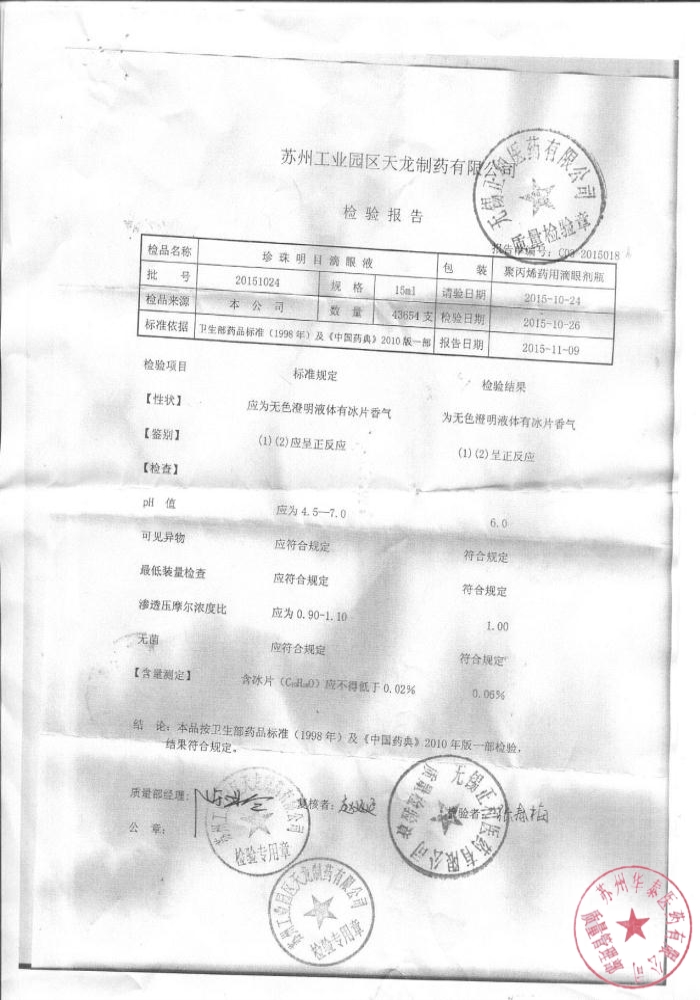 苏州工业园区天龙制药有限公司
检验报告
报告书编号：C09-2015018
检品名称 珍珠明目滴眼液 包装 聚丙烯药用滴眼剂瓶
批号 20151024 规格 15ml 请验日期 2015-10-24
检品来源 本公司 数量 43654支 检验日期 2015-10-26
标准依据 卫生部药品标准（1998年）及《中国药典》2010版一部 报告日期 2015-11-09
检验项目 标准规定 检验结果
【性状】 应为无色澄明液体有冰片香气 为无色澄明液体有冰片香气
【鉴别】 (1)(2)应呈正反应 (1)(2)呈正反应
【检查】
pH 值 应为 4.5—7.0 6.0
可见异物 应符合规定 符合规定
最低装量检查 应符合规定 符合规定
渗透压摩尔浓度比 应为 0.90-1.10 1.00
无菌 应符合规定 符合规定
【含量测定】 含冰片（C₁₀H₁₈O）应不得低于 0.02% 0.06%
结 论：本品按卫生部药品标准（1998年）及《中国药典》2010年版一部检验，
结果符合规定。
质量部经理： 复核者： 检验者：
公 章：
无锡正和医药有限公司
质量检验章
苏州工业园区天龙制药有限公司
检验专用章
无锡正和医药有限公司
质量检验章
苏州工业园区天龙制药有限公司
检验专用章
苏州华泰医药有限公司
质量管理部